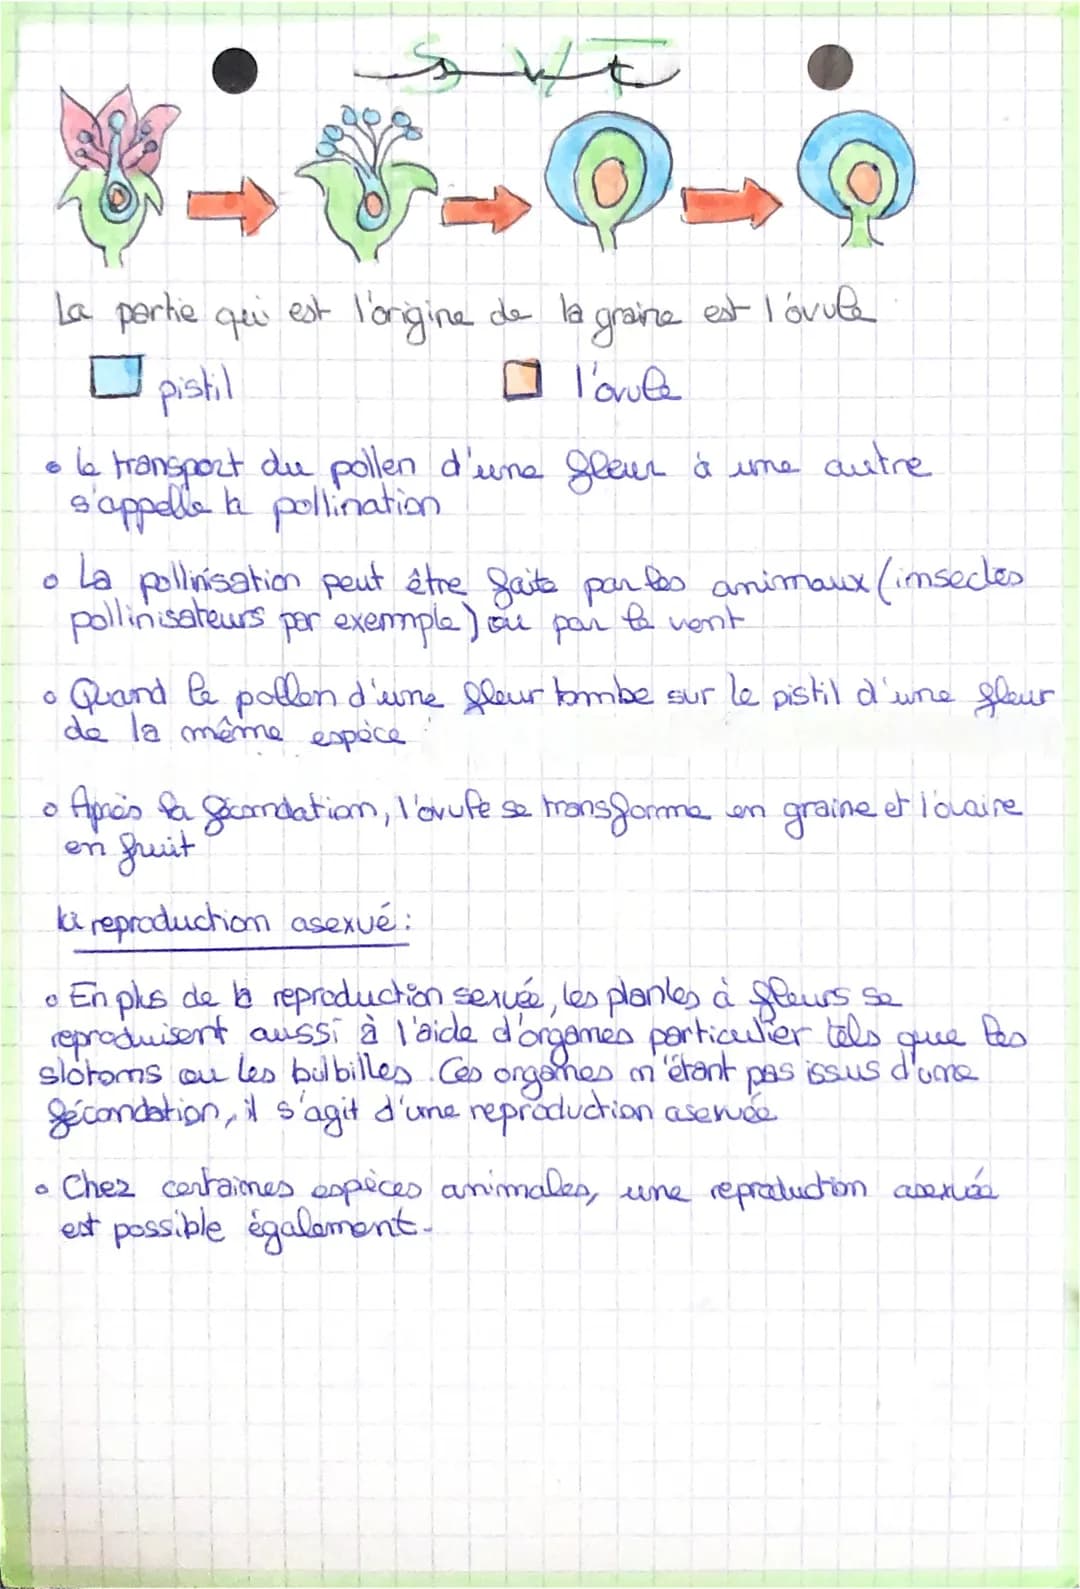 SVT
La partie qui est l'origine de la graine est l'óvule
pistil
l'ovule
• le transport du pollen d'une fleur à une autre
s'appelle la pollination
• La pollinisation peut être faite par les animaux (insectes
pollinisateurs par exemmple) ou par le vent
• Quand le pollen d'une fleur tombe sur le pistil d'une fleur
de la même espèce
• Après la fécondation, l'ovule se transforme en graine et l'ovaire
en fruit
la reproduction asexué:
• En plus de la reproduction sexuée, les plantes à fleurs se
reproduisent aussi à l'aide d'organes particulier tels que les
slotoms ou les bulbilles. Ces organes n'étant pas issus d'une
fécondation, il s'agit d'une reproduction asexuée
• Chez certaines espèces animales, une reproduction asexuée
est possible également.